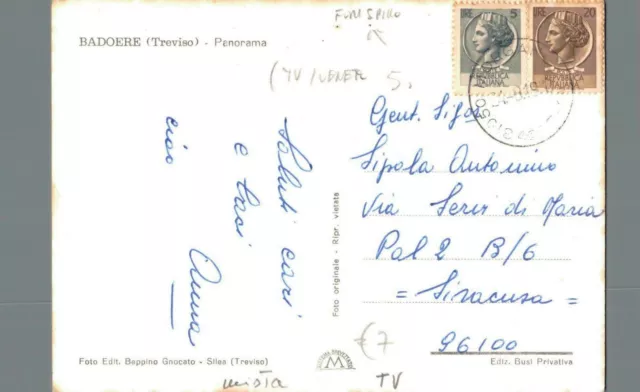 BADOERE (Treviso) - Panorama
LIRE 5
LIRE 20
REPUBBLICA
ITALIANA
ITALIANA
5.
Saluti cari
e baci
Anna
ciao
Foto originale - Ripr. vietata
Gent. Sig.
Sipala Antonino
Via Servi di Maria
Pal 2 B/6
= Siracusa =
96100
€ 7
M
Foto Edit. Beppino Gnocato - Silea (Treviso)
Ediz. Busi Privativa
mista
TV